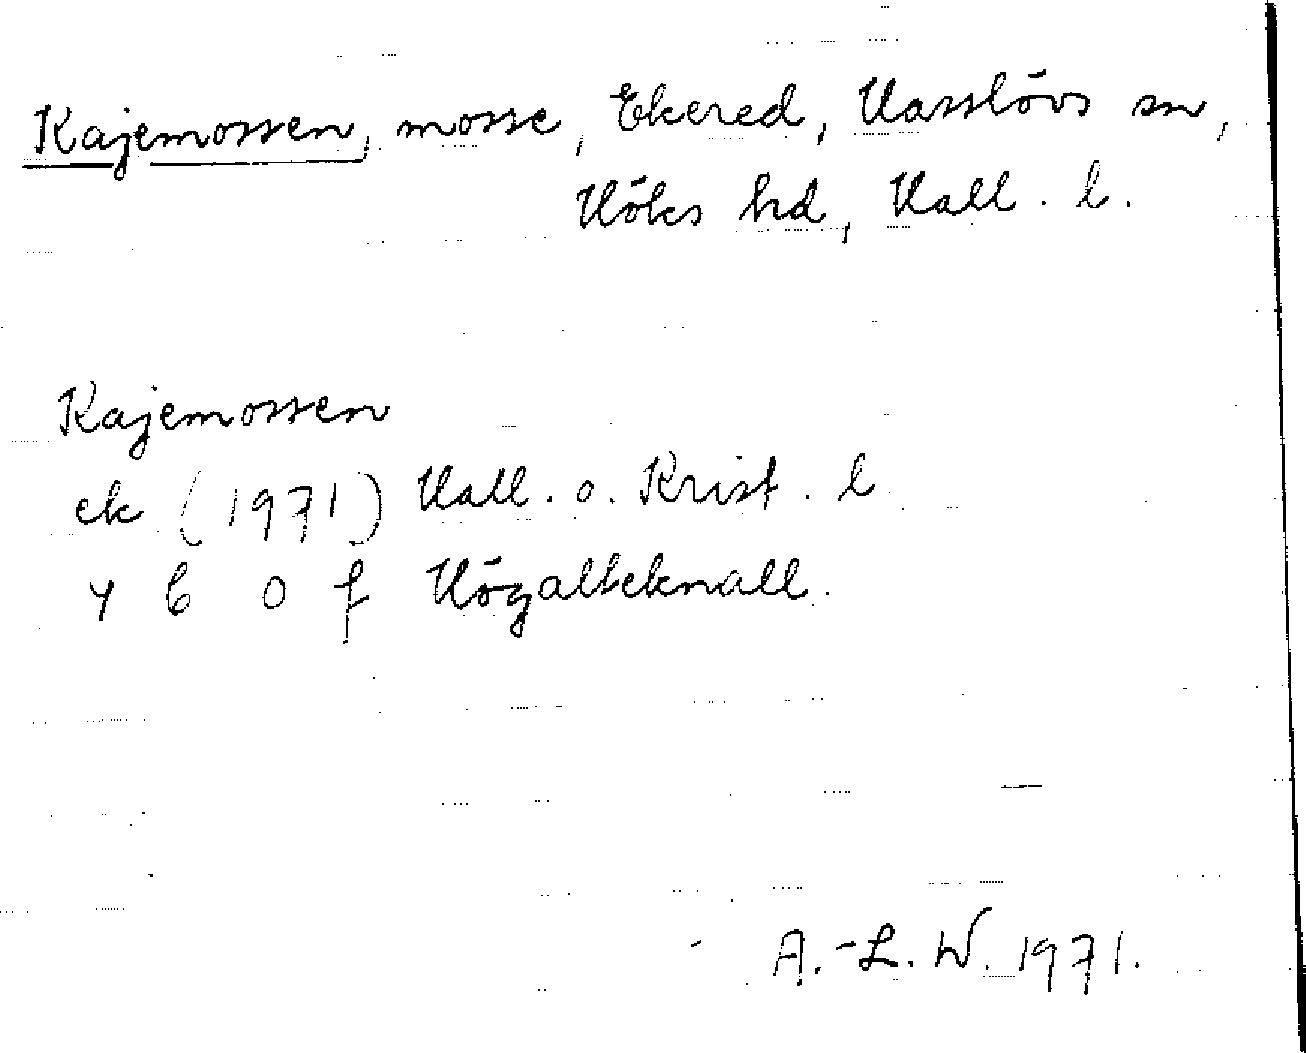 Kajemossen, mosse, Ekered, Hasslövs sn,
Höks hd, Hall. l.
Kajemossen
ek (1971) Hall. o. Krist. l
4 C 0 f Högalteknall.
A.-L. W. 1971.